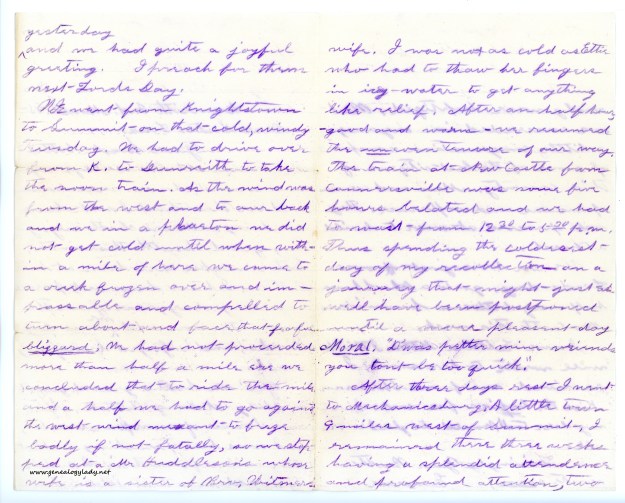 yesterday
and we had quite a joyful
greeting. I preach for them
next Lords Day.
We went from Knightstown
to Summit on that cold, windy
Tuesday. We had to drive over
from K. to Dunreith to take
the noon train. As the wind was
from the west and to our back
and we in a phaeton we did
not get cold until when with-
in a mile of here we came to
a creek frozen over and im-
passable and compelled to
turn about and face that
blizzard. We had not proceeded
more than half a mile ere we
concluded that to ride the mile
and a half we had to go against
the west wind meant to freeze
badly if not fatally, so we stop-
ped at a Mr Huddleson's whose
wife is a sister of
wife. I was not as cold as Ettie
who had to thaw her fingers
in icy-water to get anything
like relief. After an half hour,
good and warm we resumed
the uneven tenure of our way.
The train at New Castle from
Connersville was some five
hours belated and we had
to wait from 12 20 to 5 20 p.m.
Thus spending the coldest
day of my recollection on a
journey that might just as
well have been postponed
until a more pleasant day
Moral. "It was petter mine vriends
you tont be too quick."
After three days rest I went
to Mechanicsburg. A little town
9 miles west of Summit, I
remained there three weeks
having a splendid attendance
and profound attention, two
www.genealogylady.net